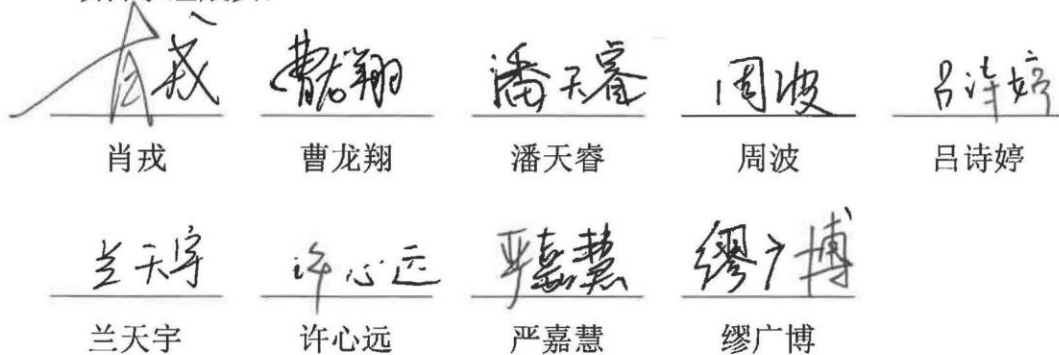 肖戎 曹龙翔 潘天睿 周波 吕诗婷
肖戎 曹龙翔 潘天睿 周波 吕诗婷
兰天宇 许心远 严嘉慧 缪广博
兰天宇 许心远 严嘉慧 缪广博